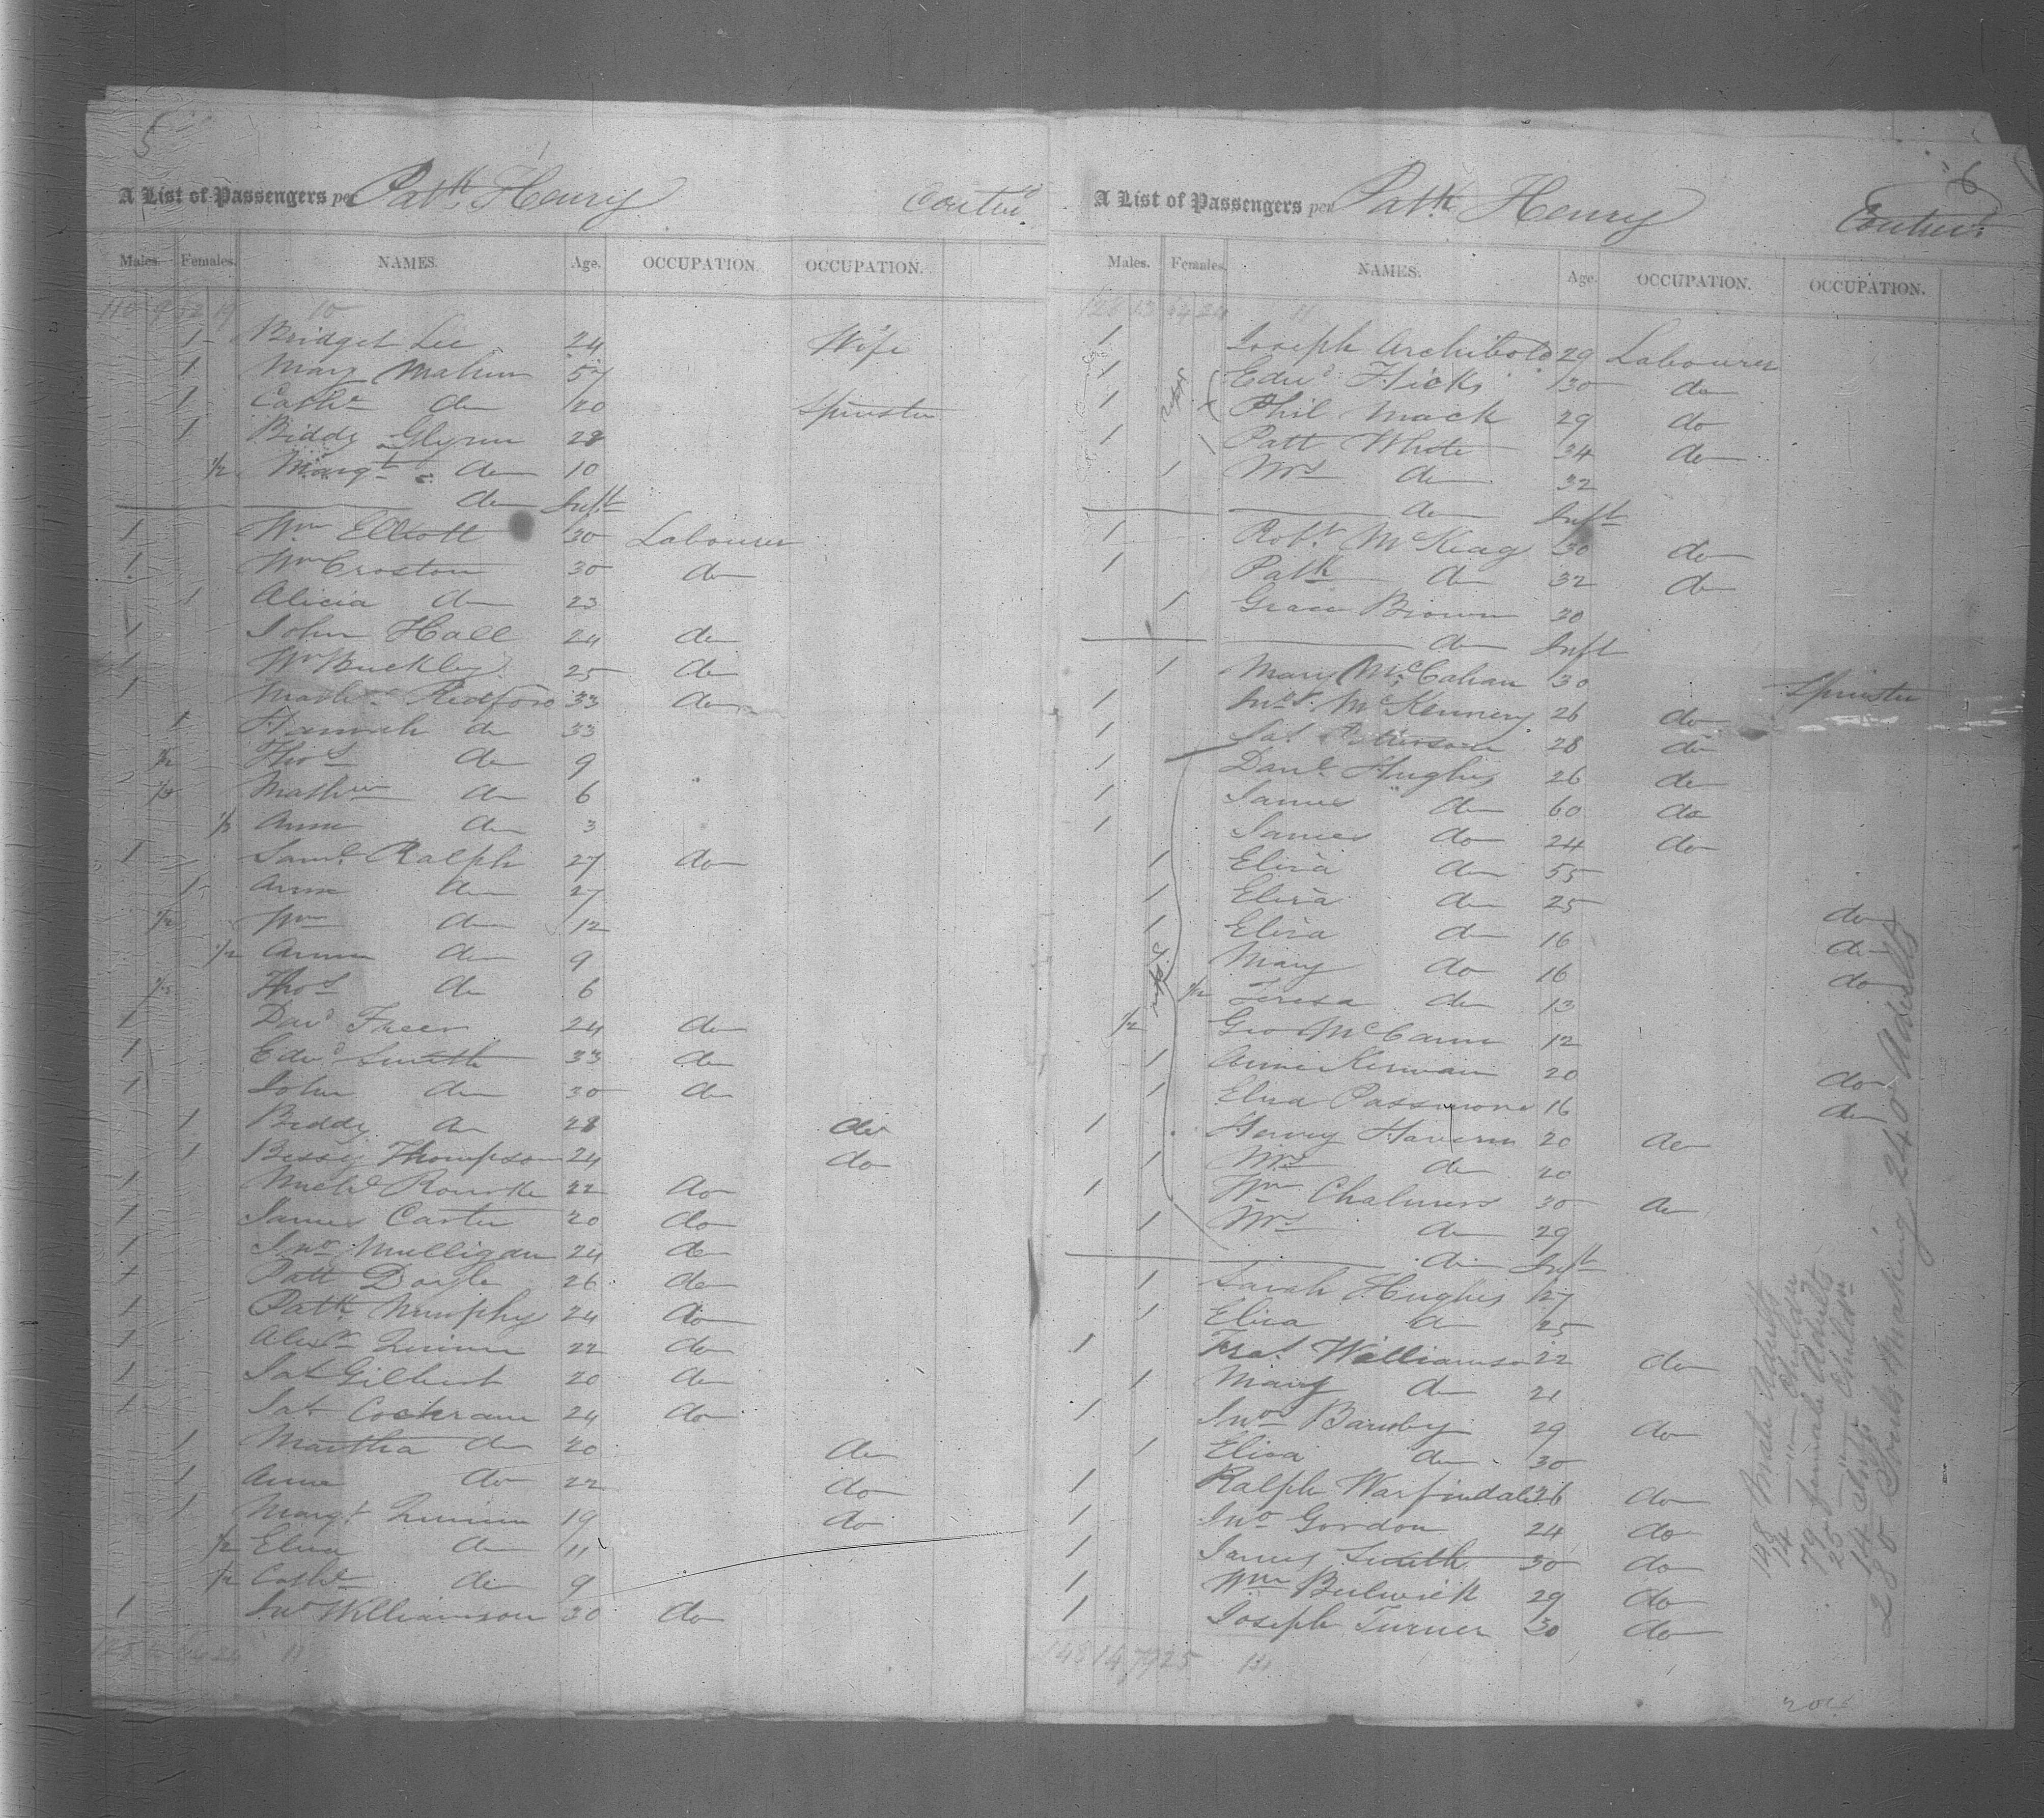 5
A List of Passengers per Patk. Henry Contin'd.
Males. Females. NAMES. Age. OCCUPATION. OCCUPATION.
110 9 52 19 10
1 Bridget Lee 24 Wife
1 Mary Mahon 57
1 Cathe do 20 Spinster
1 Biddy Glynn 28
1/2 Margt do 10
do Inft
1 Wm Elliott 30 Labourer
1 Wm Croston 30 do
1 Alicia do 23
1 John Hall 24 do
1 Wm Buckley 25 do
1 Mathw Redford 33 do
1 Hannah do 33
1/2 Thos do 9
1/2 Mathew do 6
1/2 Anne do 3
1 Saml Ralph 27 do
1 Anne do 27
1/2 Wm do 12
1/2 Anne do 9
1/2 Thos do 6
1 Davd Freer 24 do
1 Edwd Smith 33 do
1 John do 30 do
1 Biddy do 28 do
1 Bessy Thompson 24 do
1 Michl Rourke 22 do
1 James Carter 20 do
1 Jno Mulligan 24 do
1 Patt Doyle 26 do
1 Patk Murphy 24 do
1 Alexr Quinn 22 do
1 Jas Gilbert 20 do
1 Jas Cochrane 24 do
1 Martha do 20 do
1 Anne do 22 do
1 Margt Quinn 19 do
1/2 Eliza do 11
1/2 Cathe do 9
1 Jno Williamson 30 do
11
6
A List of Passengers per Patk. Henry Contin'd.
Males. Females. NAMES. Age. OCCUPATION. OCCUPATION.
128 13 64 24 11
1 Joseph Archibold 29 Labourer
1 Edwd Hicks 30 do
1 Phil Mack 29 do
1 Patt White 34 do
1 Mrs do 32
do Inft
1 Robt McKeag 30 do
1 Patk do 32 do
1 Grace Brown 20
do Inft
1 Mary McCahan 30 Spinster
1 Jno. McKenney 26 do
1 Jas Peterson 28 do
1 Danl Hughes 26 do
1 James do 60 do
1 James do 24 do
1 Eliza do 55
1 Eliza do 25 do
1 Eliza do 16 do
1 Mary do 16 do
1/2 Teresa do 13
1/2 Geo McCann 12
1 Anne Kerwan 20 do
1 Eliza Passmore 16 do
1 Henry Havern 20 do
1 Mrs do 20
1 Wm Chalmers 30 do
1 Mrs do 29
do Inft
1 Sarah Hughes 27
1 Eliza do 25
1 Fras. Williamson 22 do
1 Mary do 21
1 Jno Barnby 29 do
1 Eliza do 30
1 Ralph Warfindale 26 do
1 Jno Gordon 24 do
1 James Smith 30 do
1 Wm Bulwick 29 do
1 Joseph Turner 30 do
148 14 79 25 14
148 Male Adults
14 " Children
79 female Adults
25 " Childrn
14 Infts
280 Souls Making 240 Adults